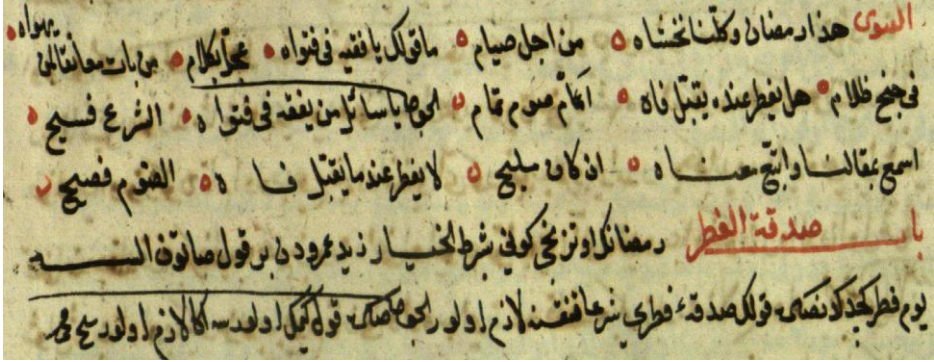 الفتوى هذا رمضان وكلنا نخشاه من اجل صيام ما قولك يا فقيه في فتواه عجل بكلام من بات معانقا لمن يهواه
في جنح ظلام هل يفطر عنده يقبل فاه ام تم صوم تمام الجواب يا سائل من يفقه في فتواه الشرع فسيح
اسمع بمقالنا واتبع معناه ان كان مليح لا يفطر عندما يقبل فاه الصوم فصيح
باب صدقة الفطر رمضانك اوتوزنجى كونى بشرط الخيار زيد عمرودن بر قول صاتون السه
يوم فطر قولك صدقهٔ فطرى شرعا لازم اولور الجواب قول كيمك اولورسه اكا لازم اولور